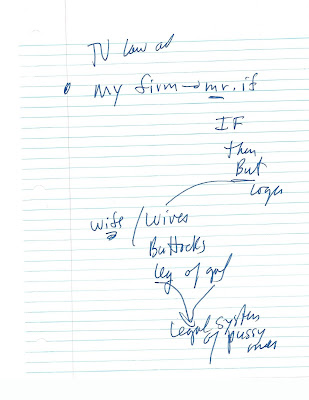 TV law ad
My firm → mr. if
IF
then
But
logic
wife / Wives
Buttocks
leg of god
legal system
of pussy